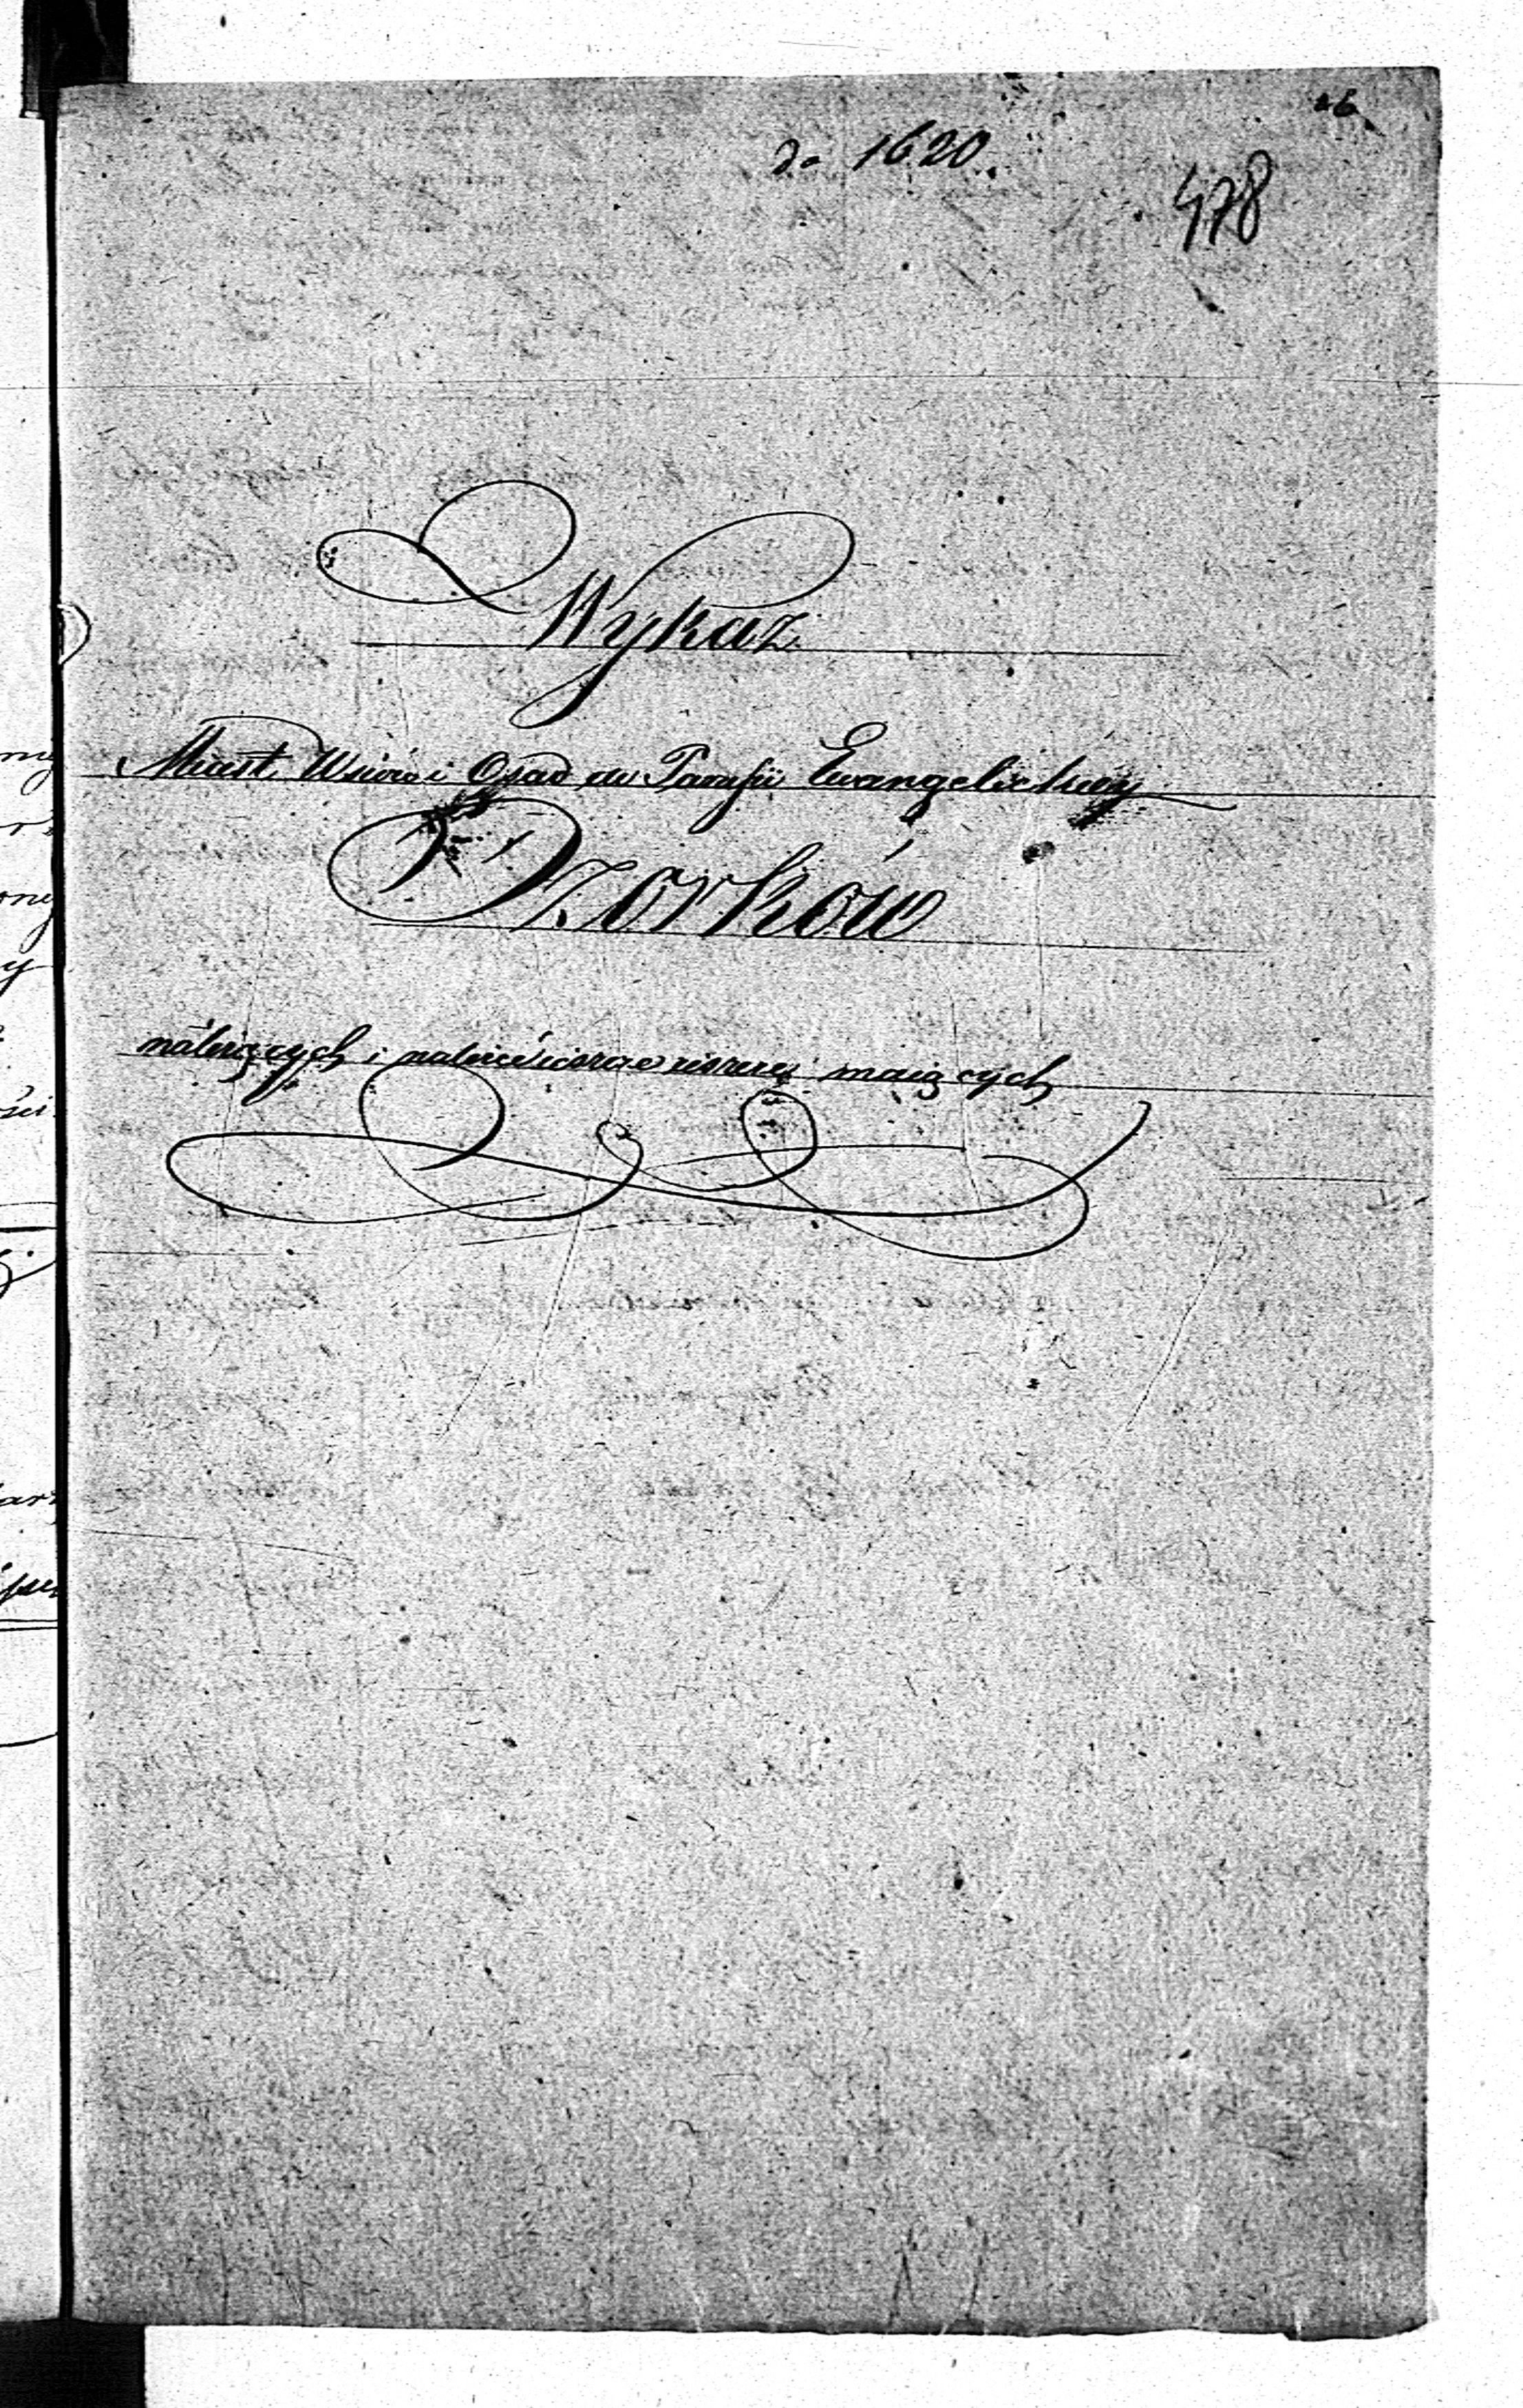 do 1620.
478
Wykaz
Miast, Wsiów i Osad do Parafii Ewangelickiey
Ozorków
należących i należeć ieszcze maiących